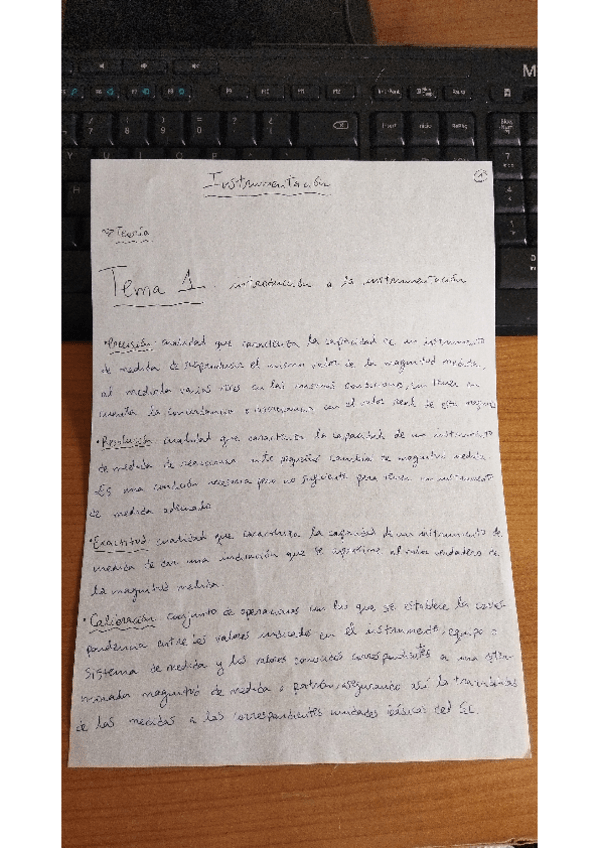 Instrumentación
1
Teoría
Tema 1. introducción a la instrumentación
• Precisión: cualidad que caracteriza la capacidad de un instrumento
de medida de el mismo valor de la magnitud medida,
al medirla varias veces en las mismas condiciones, sin tener en
cuenta la concordancia o con el valor real de esta magnitud
• Resolución: cualidad que caracteriza la capacidad de un instrumento
de medida de reaccionar ante pequeños cambios de magnitud medida.
Es una condición necesaria pero no suficiente para tener un instrumento
de medida adecuado
• Exactitud: cualidad que caracteriza la capacidad de un instrumento de
medida de dar una indicación que se aproxime al valor verdadero de
la magnitud medida.
• Calibración: conjunto de operaciones con las que se establece la corres-
pondencia entre los valores indicado en el instrumento, equipo o
sistema de medida y los valores conocidos correspondientes a una deter-
minada magnitud de medida o patrón, asegurando así la trazabilidad
de las medidas a las correspondientes unidades básicas del SI.